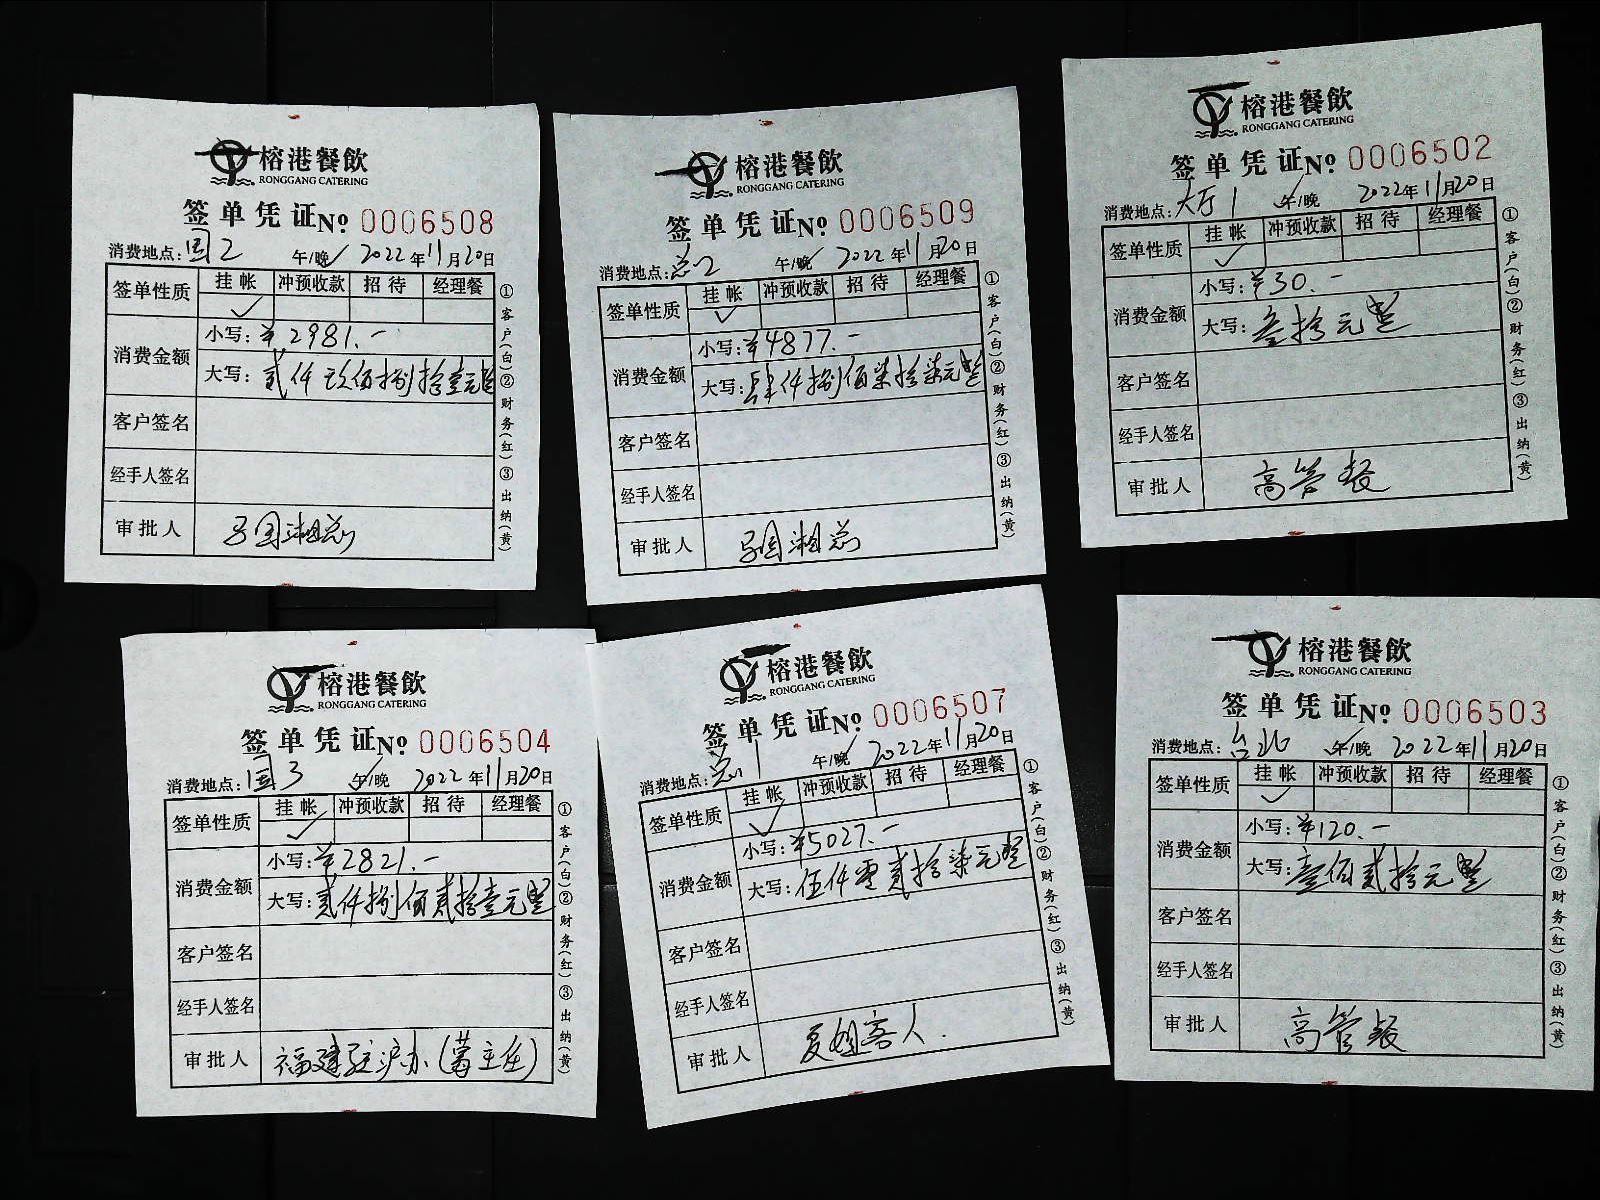 榕港餐飲
RONGGANG CATERING
签单凭证№ 0006508
消费地点:国2 午/晚✓ 2022年11月20日
签单性质 挂帐 冲预收款 招待 经理餐
✓
消费金额 小写:¥2981.-
大写:贰仟玖佰捌拾壹元整
客户签名
经手人签名
审批人 国湘总
①客户(白)②财务(红)③出纳(黄)
榕港餐飲
RONGGANG CATERING
签单凭证№ 0006509
消费地点:总2 午/晚✓ 2022年11月20日
签单性质 挂帐 冲预收款 招待 经理餐
✓
消费金额 小写:¥4877.-
大写:肆仟捌佰柒拾柒元整
客户签名
经手人签名
审批人 国湘总
①客户(白)②财务(红)③出纳(黄)
榕港餐飲
RONGGANG CATERING
签单凭证№ 0006502
消费地点:大厅1 午✓/晚 2022年11月20日
签单性质 挂帐 冲预收款 招待 经理餐
✓
消费金额 小写:¥30.-
大写:叁拾元整
客户签名
经手人签名
审批人 高管餐
①客户(白)②财务(红)③出纳(黄)
榕港餐飲
RONGGANG CATERING
签单凭证№ 0006504
消费地点:国3 午✓/晚 2022年11月20日
签单性质 挂帐 冲预收款 招待 经理餐
✓
消费金额 小写:¥2821.-
大写:贰仟捌佰贰拾壹元整
客户签名
经手人签名
审批人 福建驻沪办(主任)
①客户(白)②财务(红)③出纳(黄)
榕港餐飲
RONGGANG CATERING
签单凭证№ 0006507
消费地点:总1 午/晚✓ 2022年11月20日
签单性质 挂帐 冲预收款 招待 经理餐
✓
消费金额 小写:¥5027.-
大写:伍仟零贰拾柒元整
客户签名
经手人签名
审批人 夏姐客人.
①客户(白)②财务(红)③出纳(黄)
榕港餐飲
RONGGANG CATERING
签单凭证№ 0006503
消费地点:台北 午✓/晚 2022年11月20日
签单性质 挂帐 冲预收款 招待 经理餐
✓
消费金额 小写:¥120.-
大写:壹佰贰拾元整
客户签名
经手人签名
审批人 高管餐
①客户(白)②财务(红)③出纳(黄)